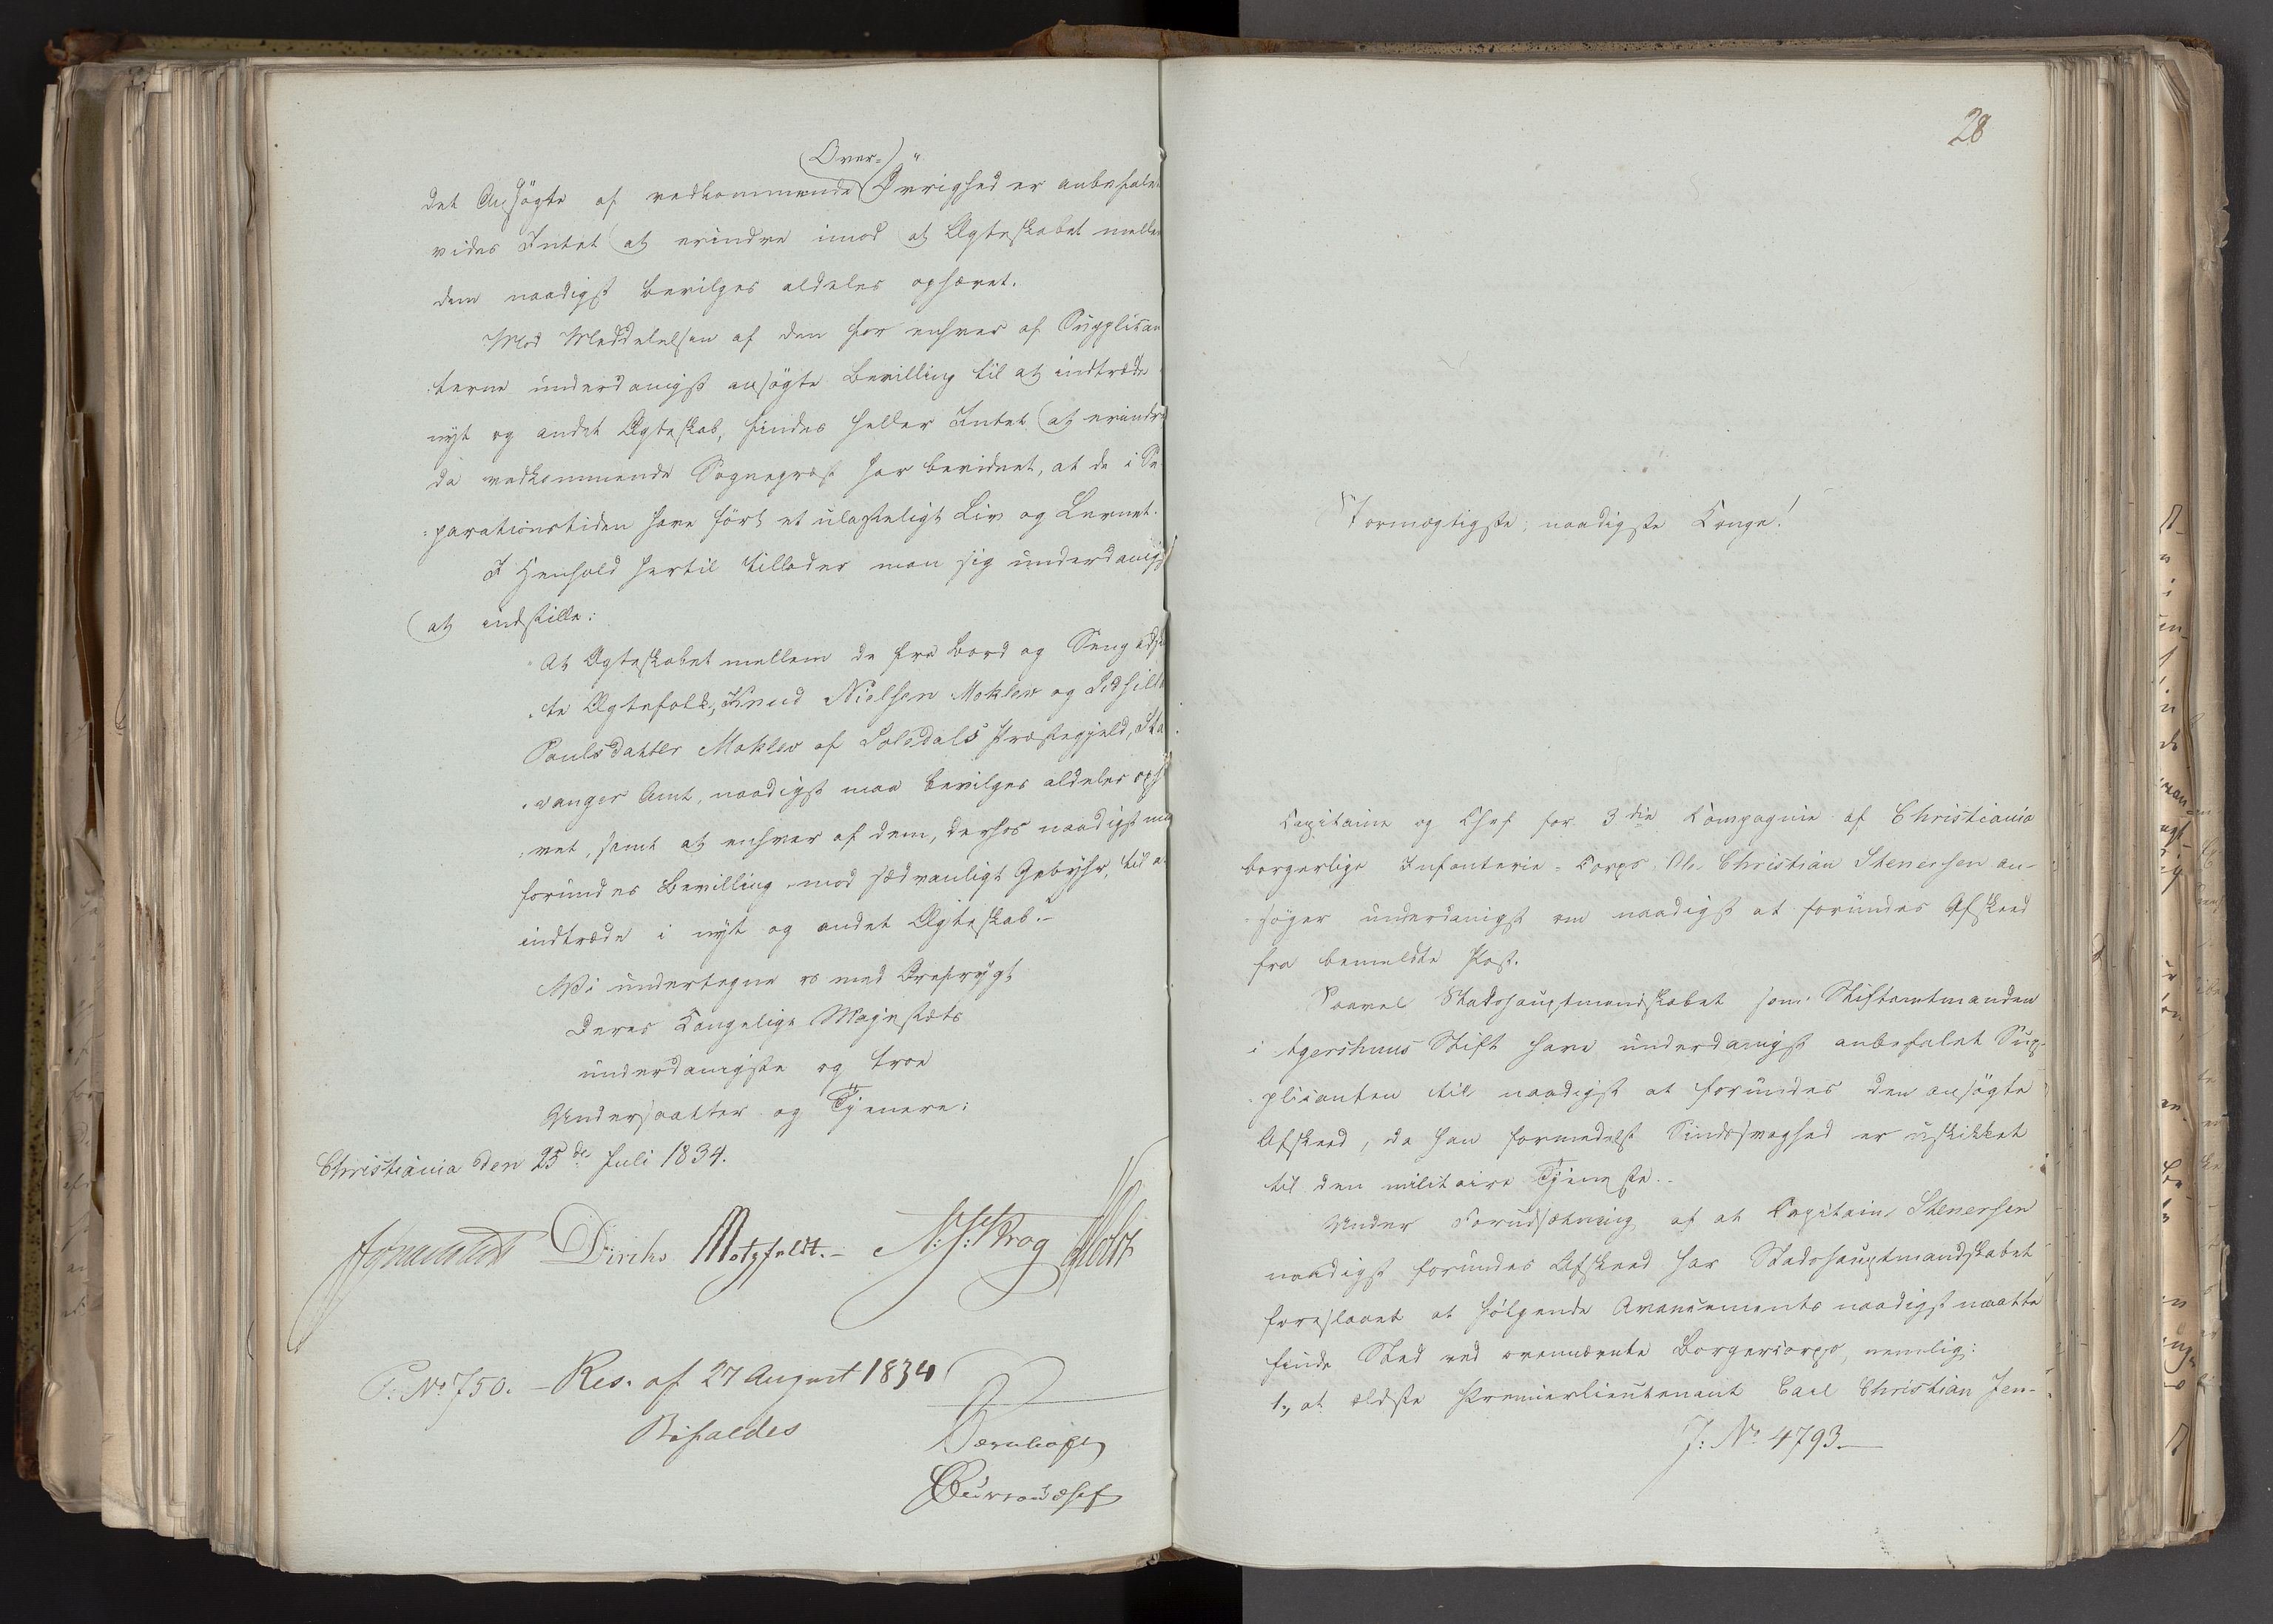 Over-
det Ansögte af vedkommende Övrighed er anbefalet
vides Intet at erindre imod at Ægteskabet mellem
dem naadigst bevilges aldeles ophævet.
Mod Meddelelsen af den for enhver af Supplican
terne underdanigst ansögte Bevilling til at indtræde
nyt og andet Ægteskab, findes heller Intet at erindre
da vedkommende Sognepræst har bevidnet, at de i Se-
parationstiden have fört et ulasteligt Liv og Levnet.
I Henhold hertil tillader man sig underdanigst
at indstille:
At Ægteskabet mellem de fra Bord og Seng adskil
te Ægtefolk, Knud Nielsen Moklev og Sidsille
Paulsdatter Moklev af Præstegjeld, Sta
vanger Amt, naadigst maa bevilges aldeles ophæ
vet, samt at enhver af dem, derhos naadigst maa
forundes Bevilling mod sædvanligt Gebyhr, til at
indtræde i nyt og andet Ægteskab.-
Vi undertegne os med Ærefrygt
Deres Kongelige Majestæts
underdanigste og troe
Undersaatter og Tjenere:
Christiania den 25de Juli 1834.
Diriks Motzfeldt.- N:J:Krog Holst
P: No 750. - Res. af 27 August 1834
Bifaldes
28
Stormægtigste, naadigste Konge!
Capitaine og Chef for 3die Compagnie af Christiania
borgerlige Infanterie-Corps Ole Christian Stenersen an-
söger underdanigst om naadigst at forundes Afskeed
fra bemeldte Post.
Saavel Stadshauptmandskabet som Stiftamtmanden
i Agershuus Stift have underdanigst anbefalet Sup-
plicanten til naadigst at forundes den ansögte
Afskeed, da han formedelst Sindssvaghed er uskikket
til den militaire Tjeneste.-
Under Forudsætning af at Capitain Stenersen
naadigst forundes Afskeed har Stadshauptmandskabet
foreslaaet at fölgende Avancements naadigst maatte
finde Sted ved ovennævnte Borgercorps, nemlig:
1., at ældste Premierlieutenant Carl Christian Jen-
J: No 4793.